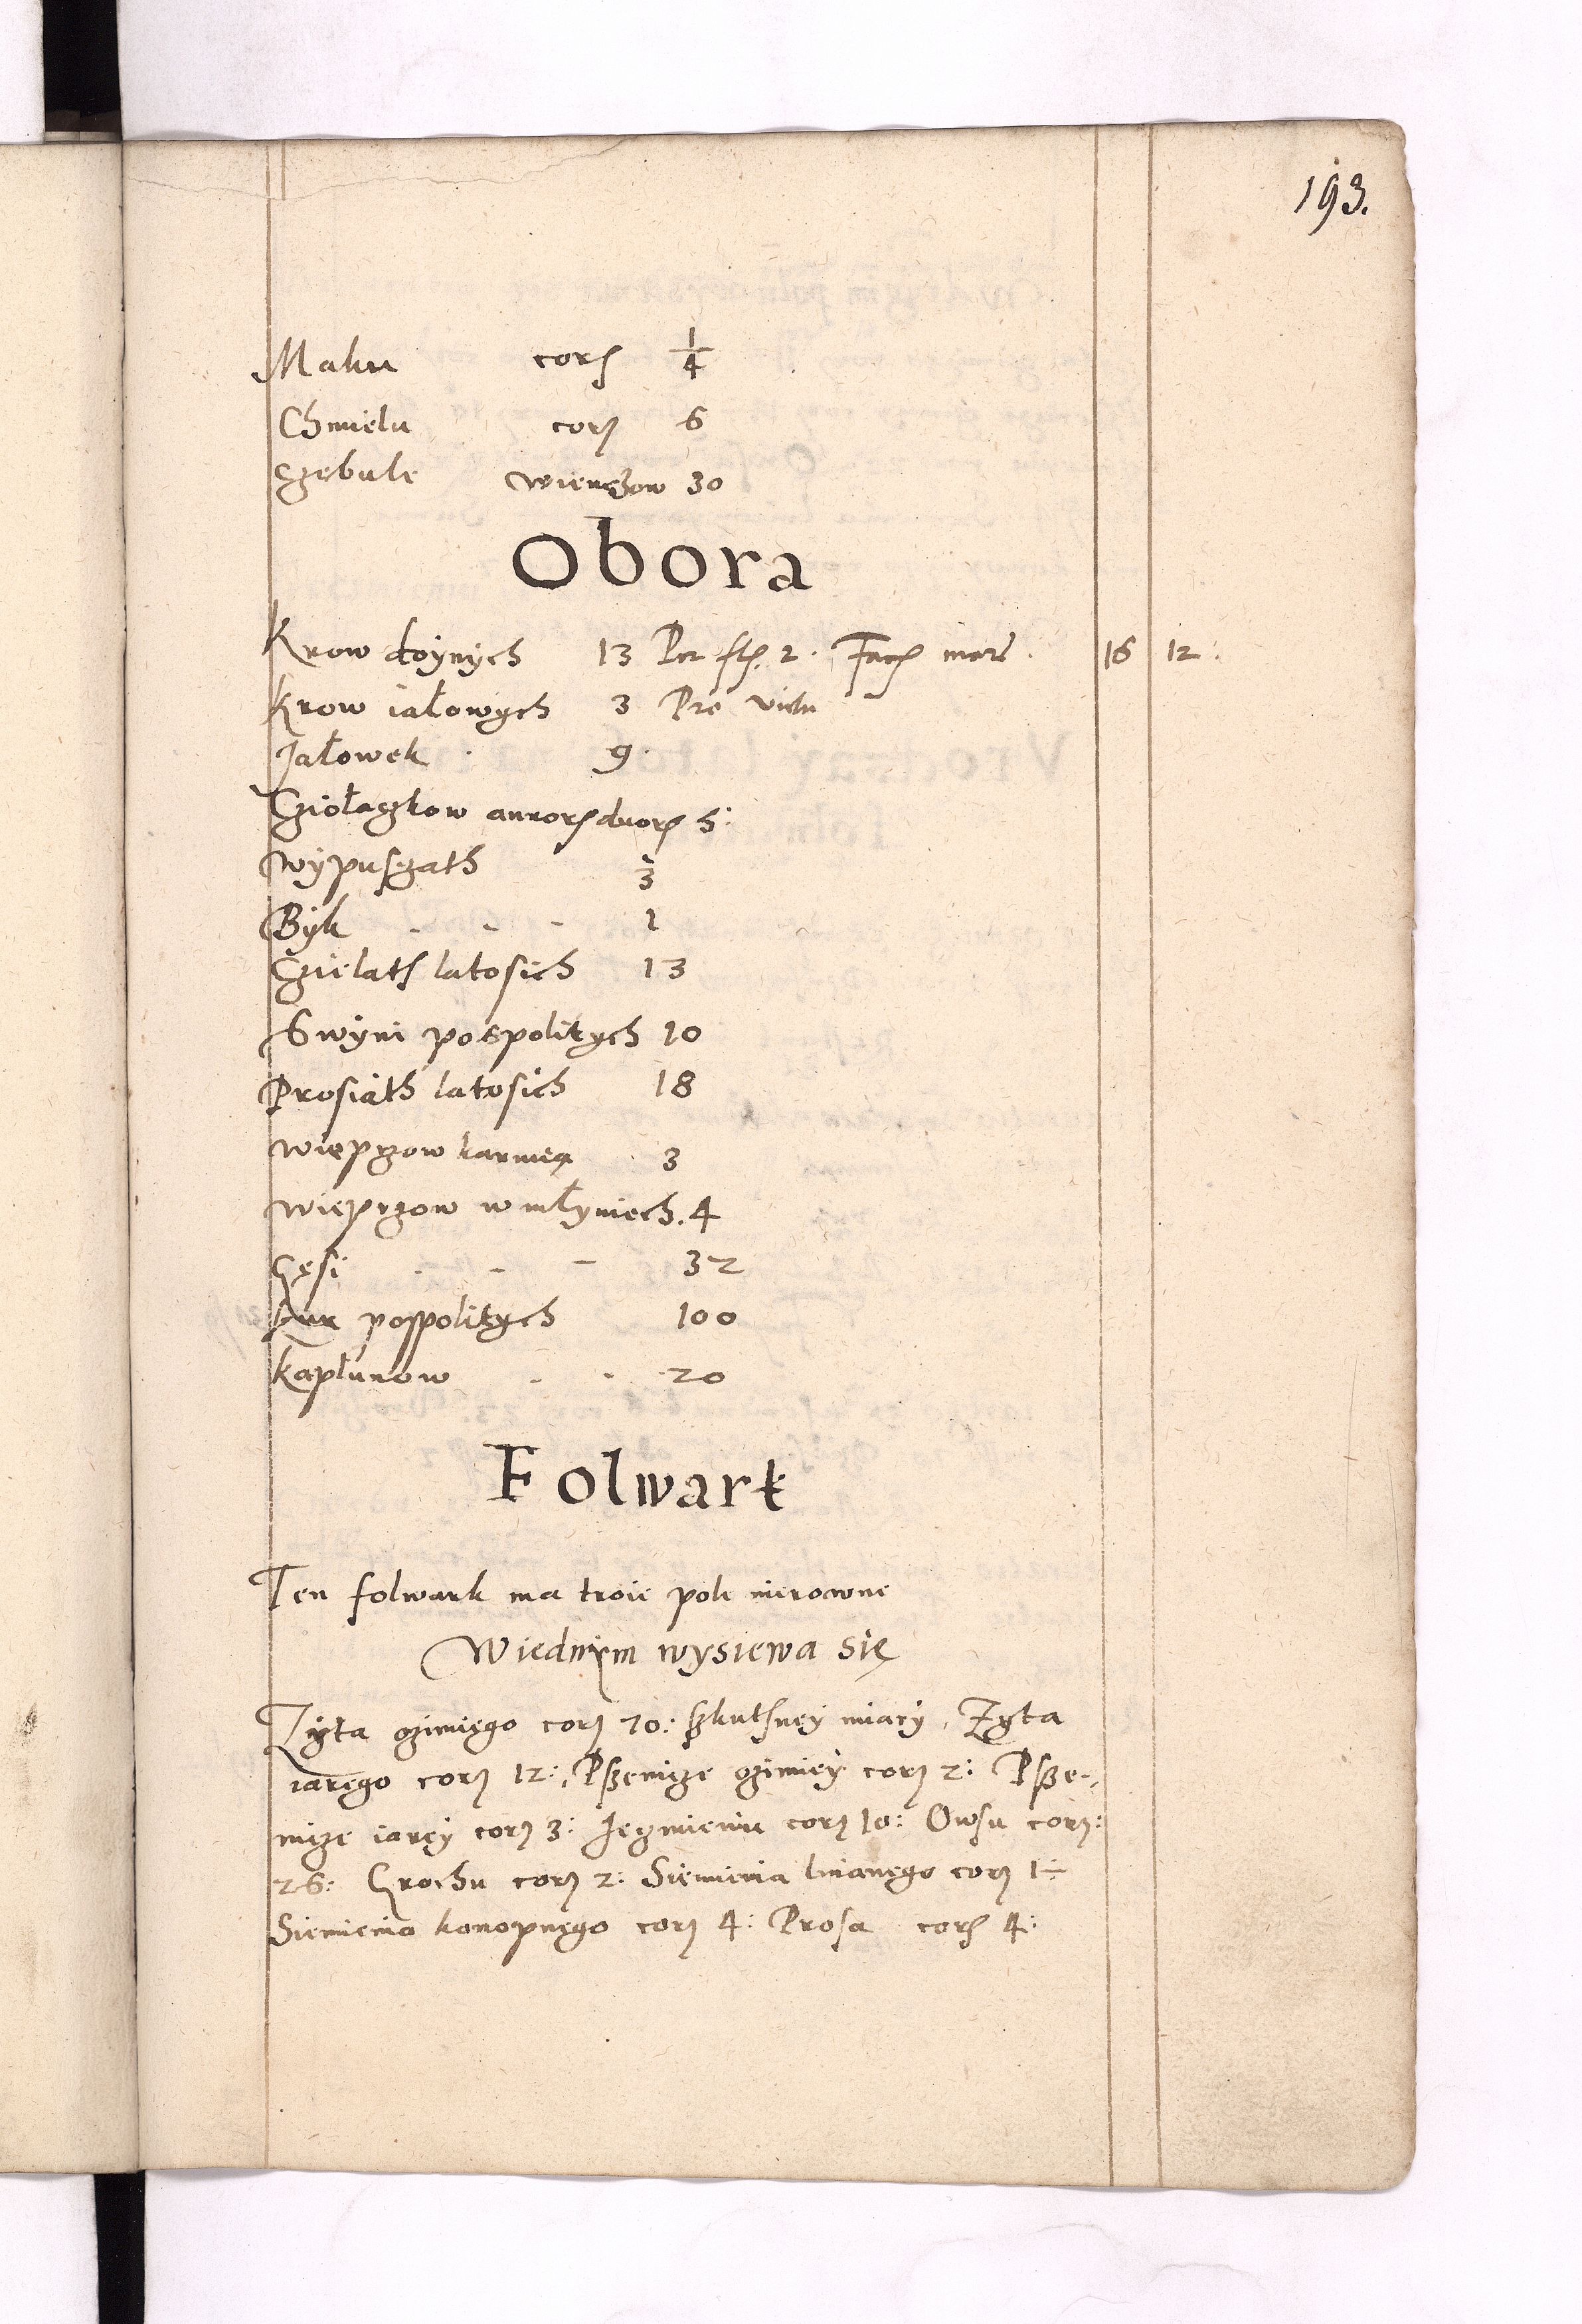 193.
Maku cor. 1/4
Chmielu cor. 6
Czebule wienczow 30
Obora
Krow doynych 13 Per fl. 2. Fac. mar. 16 12:
Krow iałowych 3 Pro victu
Jałowek 9.
Cziołaczkow annor. duor. 5:
Wypusczath 3
Byk - - - 1
Czieląth latosich 13
Swyni pospolitych 10
Prosiąth latosich 18
Wieprzow karmią 3
Wieprzow w młyniech. 4
Gęsi - - - 32
kur pospolitych 100
kapłunow - - 20
Folwark
Ten folwark ma troie pole nierowne
Wiednym wysiewa się
Zyta ozimięgo cor. 70: szkuthney miary. Zyta
iaręgo cor. 12: Pszenicze ozimięy cor. 2: Psze-
nicze iaręy cor. 3: Jęczmieniu cor. 10: Owsu cor.:
26: Grochu cor. 2: Siemienia lnianęgo cor. 1÷
Siemienia konopnęgo cor. 4: Prosa cor. 4: